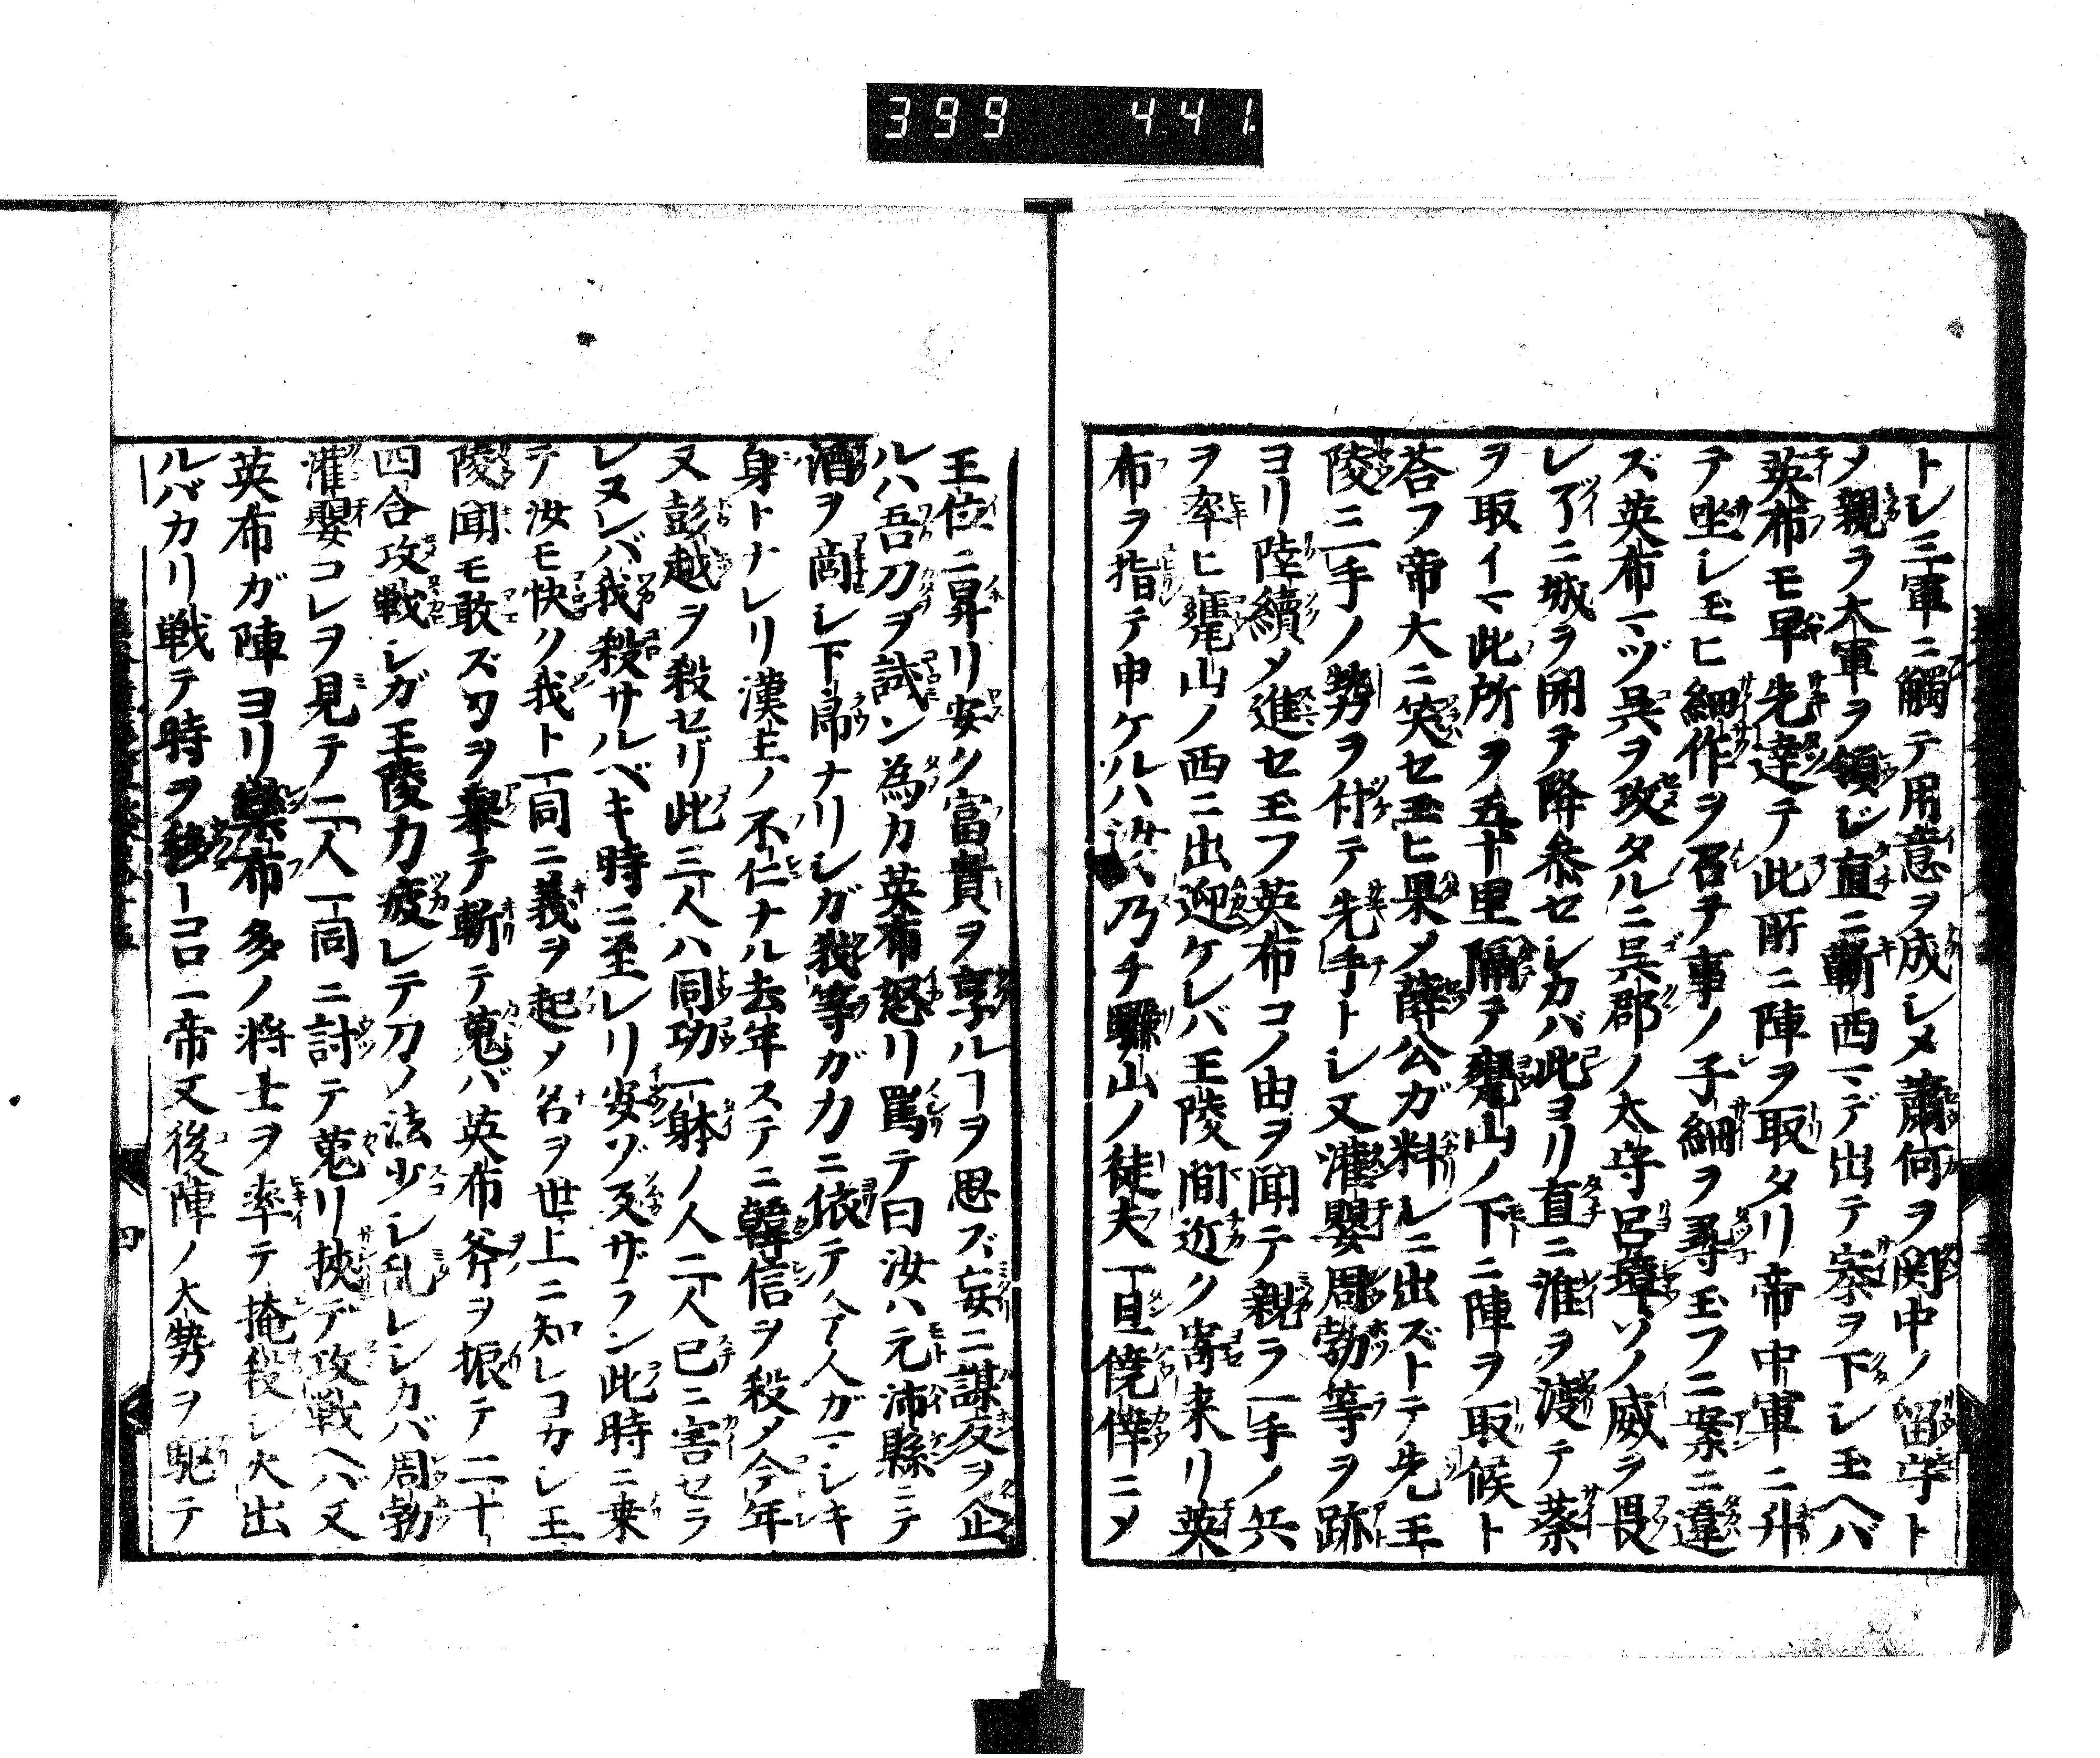 399 441.
トレ三軍ニ觸テ用意ヲ成シメ蕭何ヲ関中ノ留守ト
メ親ラ大軍ヲ領シ直ニ蘄西マデ出テ寨ヲ下シ玉ヘバ
英布モ早先達テ此所ニ陣ヲ取タリ帝中軍ニ升
テ坐シ玉ヒ細作ヲ召テ事ノ子細ヲ尋玉フニ案ニ違
ズ英布マヅ呉ヲ攻タルニ呉郡ノ太守呂璋ソノ威ヲ畏
レ了ニ城ヲ開テ降参セシカバ此ヨリ直ニ淮ヲ渡テ蔡
ヲ取イマ此所ヲ五十里隔テ甕山ノ下ニ陣ヲ取候ト
荅フ帝大ニ笑セ玉ヒ果メ薛公ガ料シニ出ズトテ先王
陵ニ一手ノ勢ヲ付テ先手トシ又灌嬰周勃等ヲ跡
ヨリ陸續メ進セ玉フ英布コノ由ヲ聞テ親ラ一手ノ兵
ヲ率ヒ甕山ノ西ニ出迎ケレバ王陵間近ク寄来リ英
布ヲ指テ申ケルハ汝ハ乃チ驪山ノ徒夫一旦僥倖ニメ
王位ニ昇リ安ク富貴ヲ享ルヿヲ思ズ妄ニ謀反ヲ企
ルハ吾刀ヲ試ン為カ英布怒リ罵テ曰汝ハ元沛縣ニテ
酒ヲ商シ下郎ナリシガ我等ガ力ニ依テ今人ガマシキ
身トナレリ漢王ノ不仁ナル去年ステニ韓信ヲ殺メ今年
又彭越ヲ殺セリ此三人ハ同功一躰ノ人二人已ニ害セラ
レヌレバ我殺サルベキ時ニ至レリ安ゾ反ザラン此時ニ乗
テ汝モ快ク我ト一同ニ義ヲ起メ名ヲ世上ニ知レコカシ王
陵聞モ敢ズ刀ヲ舉テ斬テ蒐バ英布斧ヲ振テ二十
四合攻戦シガ王陵力疲レテ刀ノ法少シ乱レシカバ周勃
灌嬰コレヲ見テ二人一同ニ討テ蒐リ挾デ攻戦ヘバ又
英布ガ陣ヨリ欒布多ノ将士ヲ率テ掩殺シ火出
ルバカリ戦テ時ヲ移ーコロニ帝又後陣ノ大勢ヲ駆テ
四